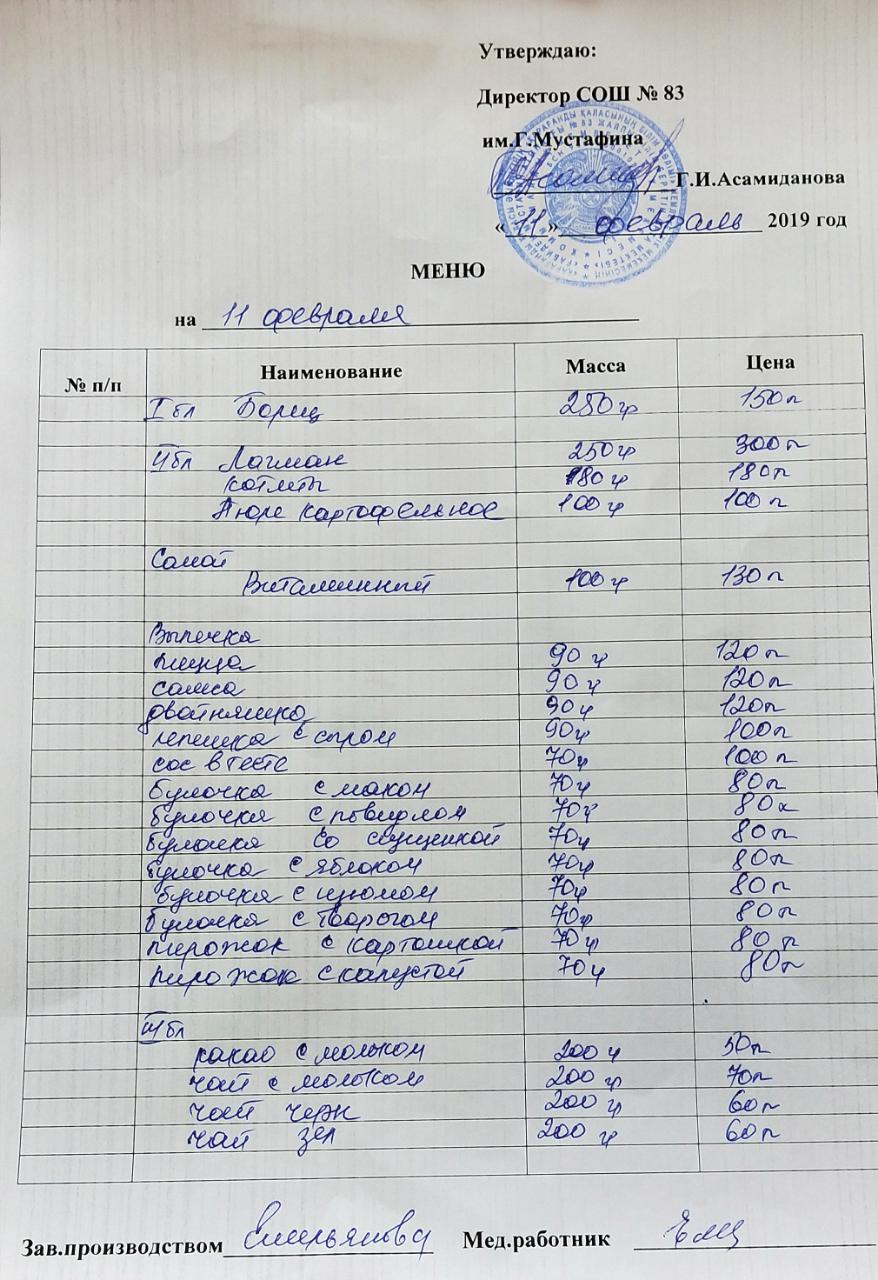 Утверждаю:
Директор СОШ № 83
им.Г.Мустафина
Г.И.Асамиданова
« 11 » февраль 2019 год
МЕНЮ
на 11 февраля
№ п/п Наименование Масса Цена
I бл Борщ 250 гр 150 т
II бл Лагман 250 гр 300 т
котлеты 80 гр 180 т
Пюре картофельное 100 гр 100 т
Салат
Витаминный 100 гр 130 т
Выпечка
пицца 90 гр 120 т
самса 90 гр 120 т
двойняшка 90 гр 120 т
лепешка с сыром 90 гр 100 т
сос в тесте 70 гр 100 т
булочка с маком 70 гр 80 т
булочка с повидлом 70 гр 80 т
булочка со сгущенкой 70 гр 80 т
булочка с яблоком 70 гр 80 т
булочка с изюмом 70 гр 80 т
булочка с творогом 70 гр 80 т
пирожок с картошкой 70 гр 80 т
пирожок с капустой 70 гр 80 т
III бл
какао с молоком 200 гр 50 т
чай с молоком 200 гр 70 т
чай черн 200 гр 60 т
чай зел 200 гр 60 т
Зав.производством Емельянова Мед.работник